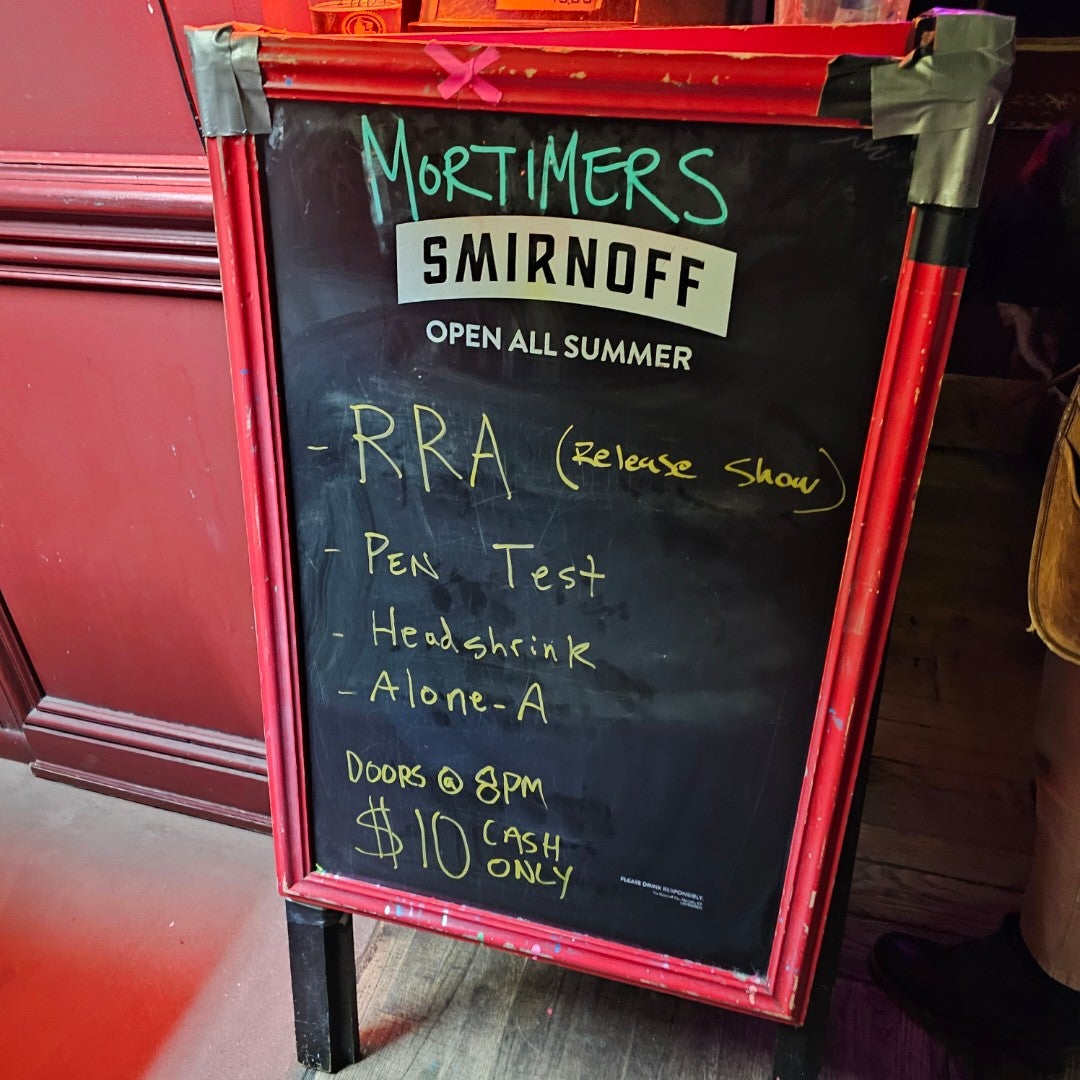 MORTIMERS
SMIRNOFF
OPEN ALL SUMMER
- RRA (Release Show)
- PEN Test
- Headshrink
- Alone-A
DOORS @ 8PM
$10 CASH
ONLY
PLEASE DRINK RESPONSIBLY.